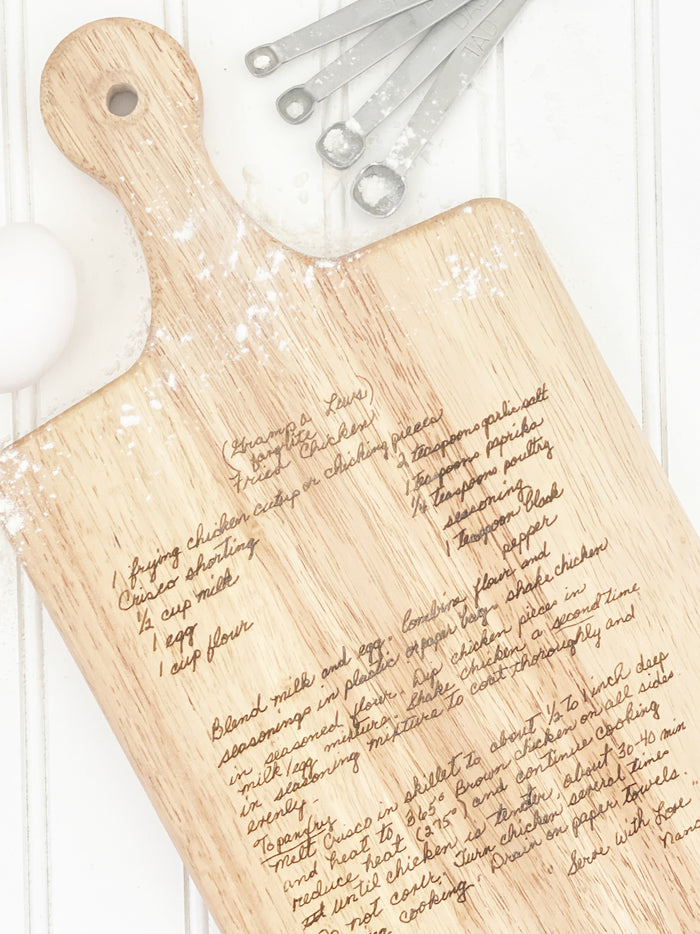 (Grampa Lews)
favorite
Fried Chicken
1 frying chicken cutup or chicking pieces
Crisco shorting
1/2 cup milk
1 egg
1 cup flour
2 teaspoons garlic salt
1 teaspoons paprika
1/4 teaspoons poultry
seasoning
1 teaspoon black
pepper
Blend milk and egg. Combine flour and
seasonings in plastic or paper bag. shake chicken
in seasoned flour. Dip chicken pieces in
milk/egg mixture. Shake chicken a second time
in seasoning mixture to coat thoroughly and
evenly.
To panfry
Melt Crisco in skillet to about 1/2 to 1 inch deep
and heat to 365° Brown chicken on all sides
reduce heat (275°) and continue cooking
until chicken is tender, about 30-40 min
Do not cover. Turn chicken several times
cooking. Drain on paper towels.
"Serve with Love"
Nanc